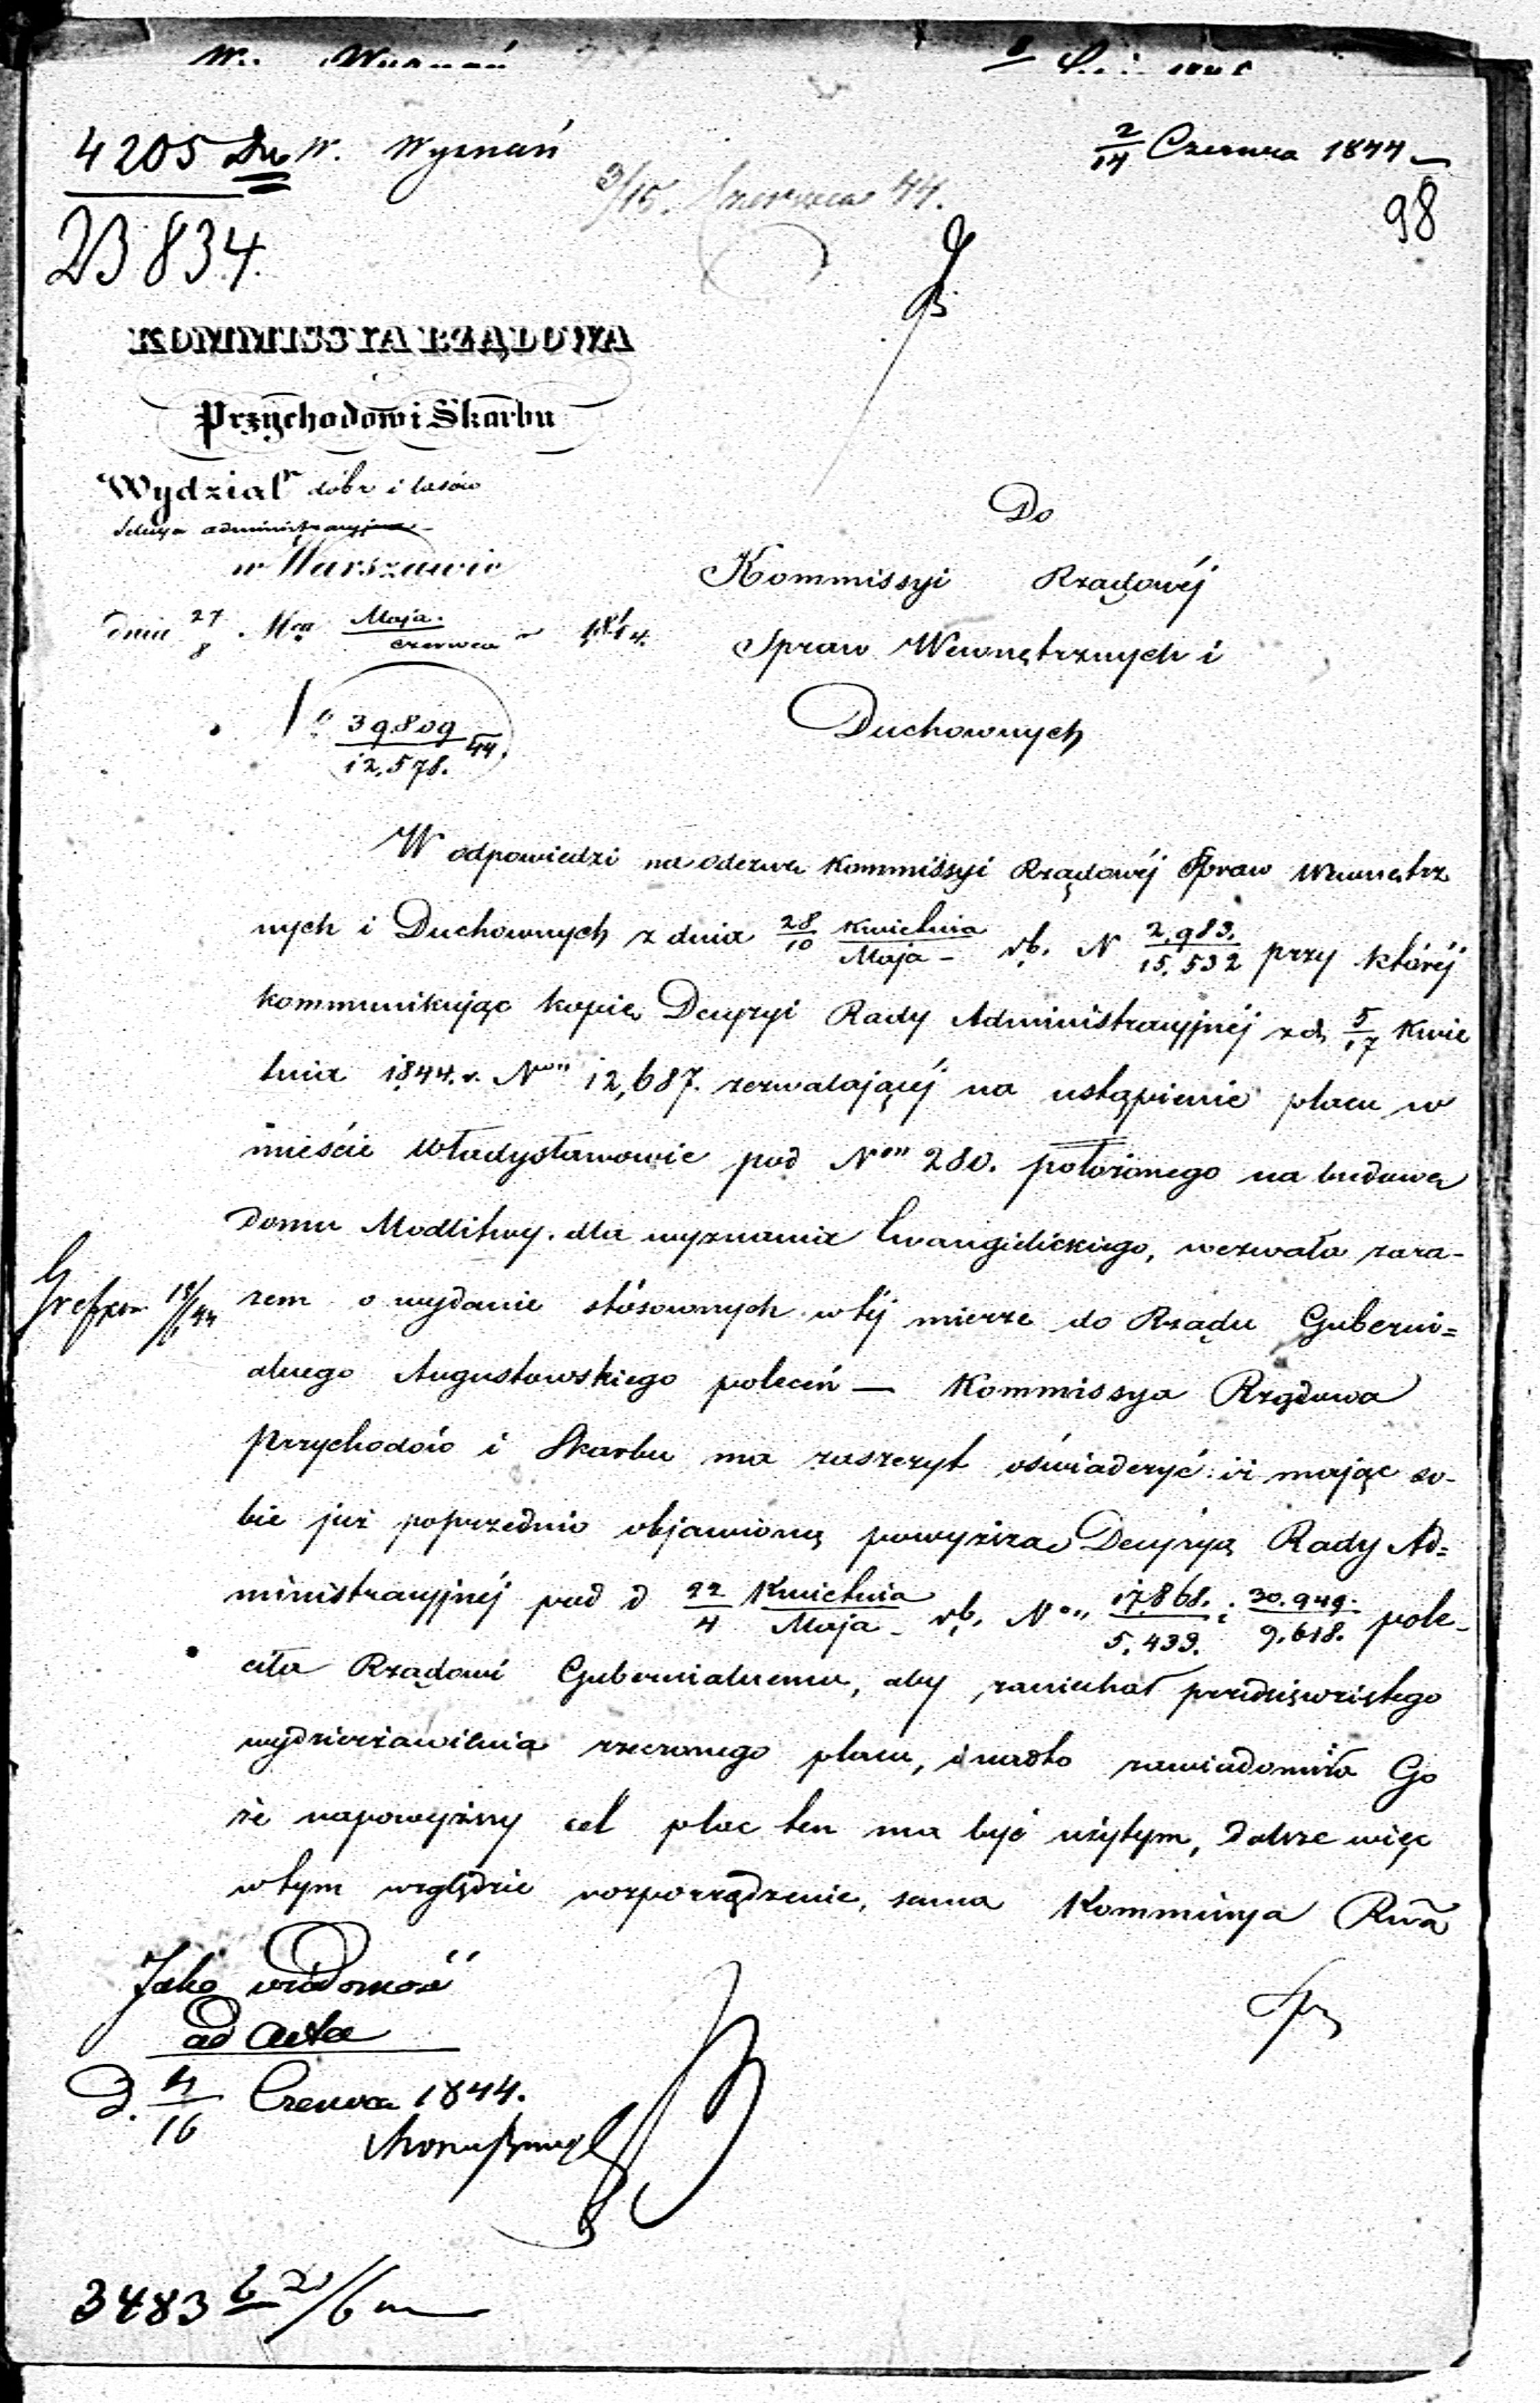 4205 W. Wyznań
2/14 Czerwca 1844
98
3/15. Czerwca 44.
23834.
KOMMISSYA RZĄDOWA
Przychodów i Skarbu
Wydział dóbr i lasów
Sekcya administracyjna
w Warszawie
dnia 27/8 Mca Maja/Czerwca 1844.
39809/12,578. 44.
Do
Kommissyi Rządowéj
Spraw Wewnętrznych i
Duchownych
W odpowiedzi na odezwę Kommissyi Rządowéj Spraw Wewnętrz
nych i Duchownych z dnia 28/10 Kwietnia/Maja rb. N 2,983./15,532 przy któréj
kommunikując kopię Decyzyi Rady Administracyjnéj z d. 5/17 Kwie
tnia 1844. r. N 12,687. zezwalającéj na ustąpienie placu w
mieście Władysławowie pod N 280. położonego na budowę
Domu Modlitwy dla wyznania Ewangielickiego, wezwała zara-
zem o wydanie stósownych w téj mierze do Rządu Guberni=
alnego Augustowskiego poleceń — Kommissya Rządowa
Przychodów i Skarbu ma zaszczyt oświadczyć: iż mając so-
bie już poprzednio objawioną powyższą Decyzyą Rady Ad=
ministracyjnéj pod d 22/4 Kwietnia/Maja rb. N 17.868./5,439. : 30.949./9.618. pole-
ciła Rządowi Gubernialnemu, aby zaniechał przedsięwziętego
wydzierżawienia rzeczonego placu, i nadto zawiadomiła Go
że na powyższy cel plac ten ma być użytym, dalsze więc
w tym względzie rozporządzenie, sama Kommissya Rwa
Spr
Jako wiadomość
ad acta
D. 4/16 Czerwca 1844.
3483